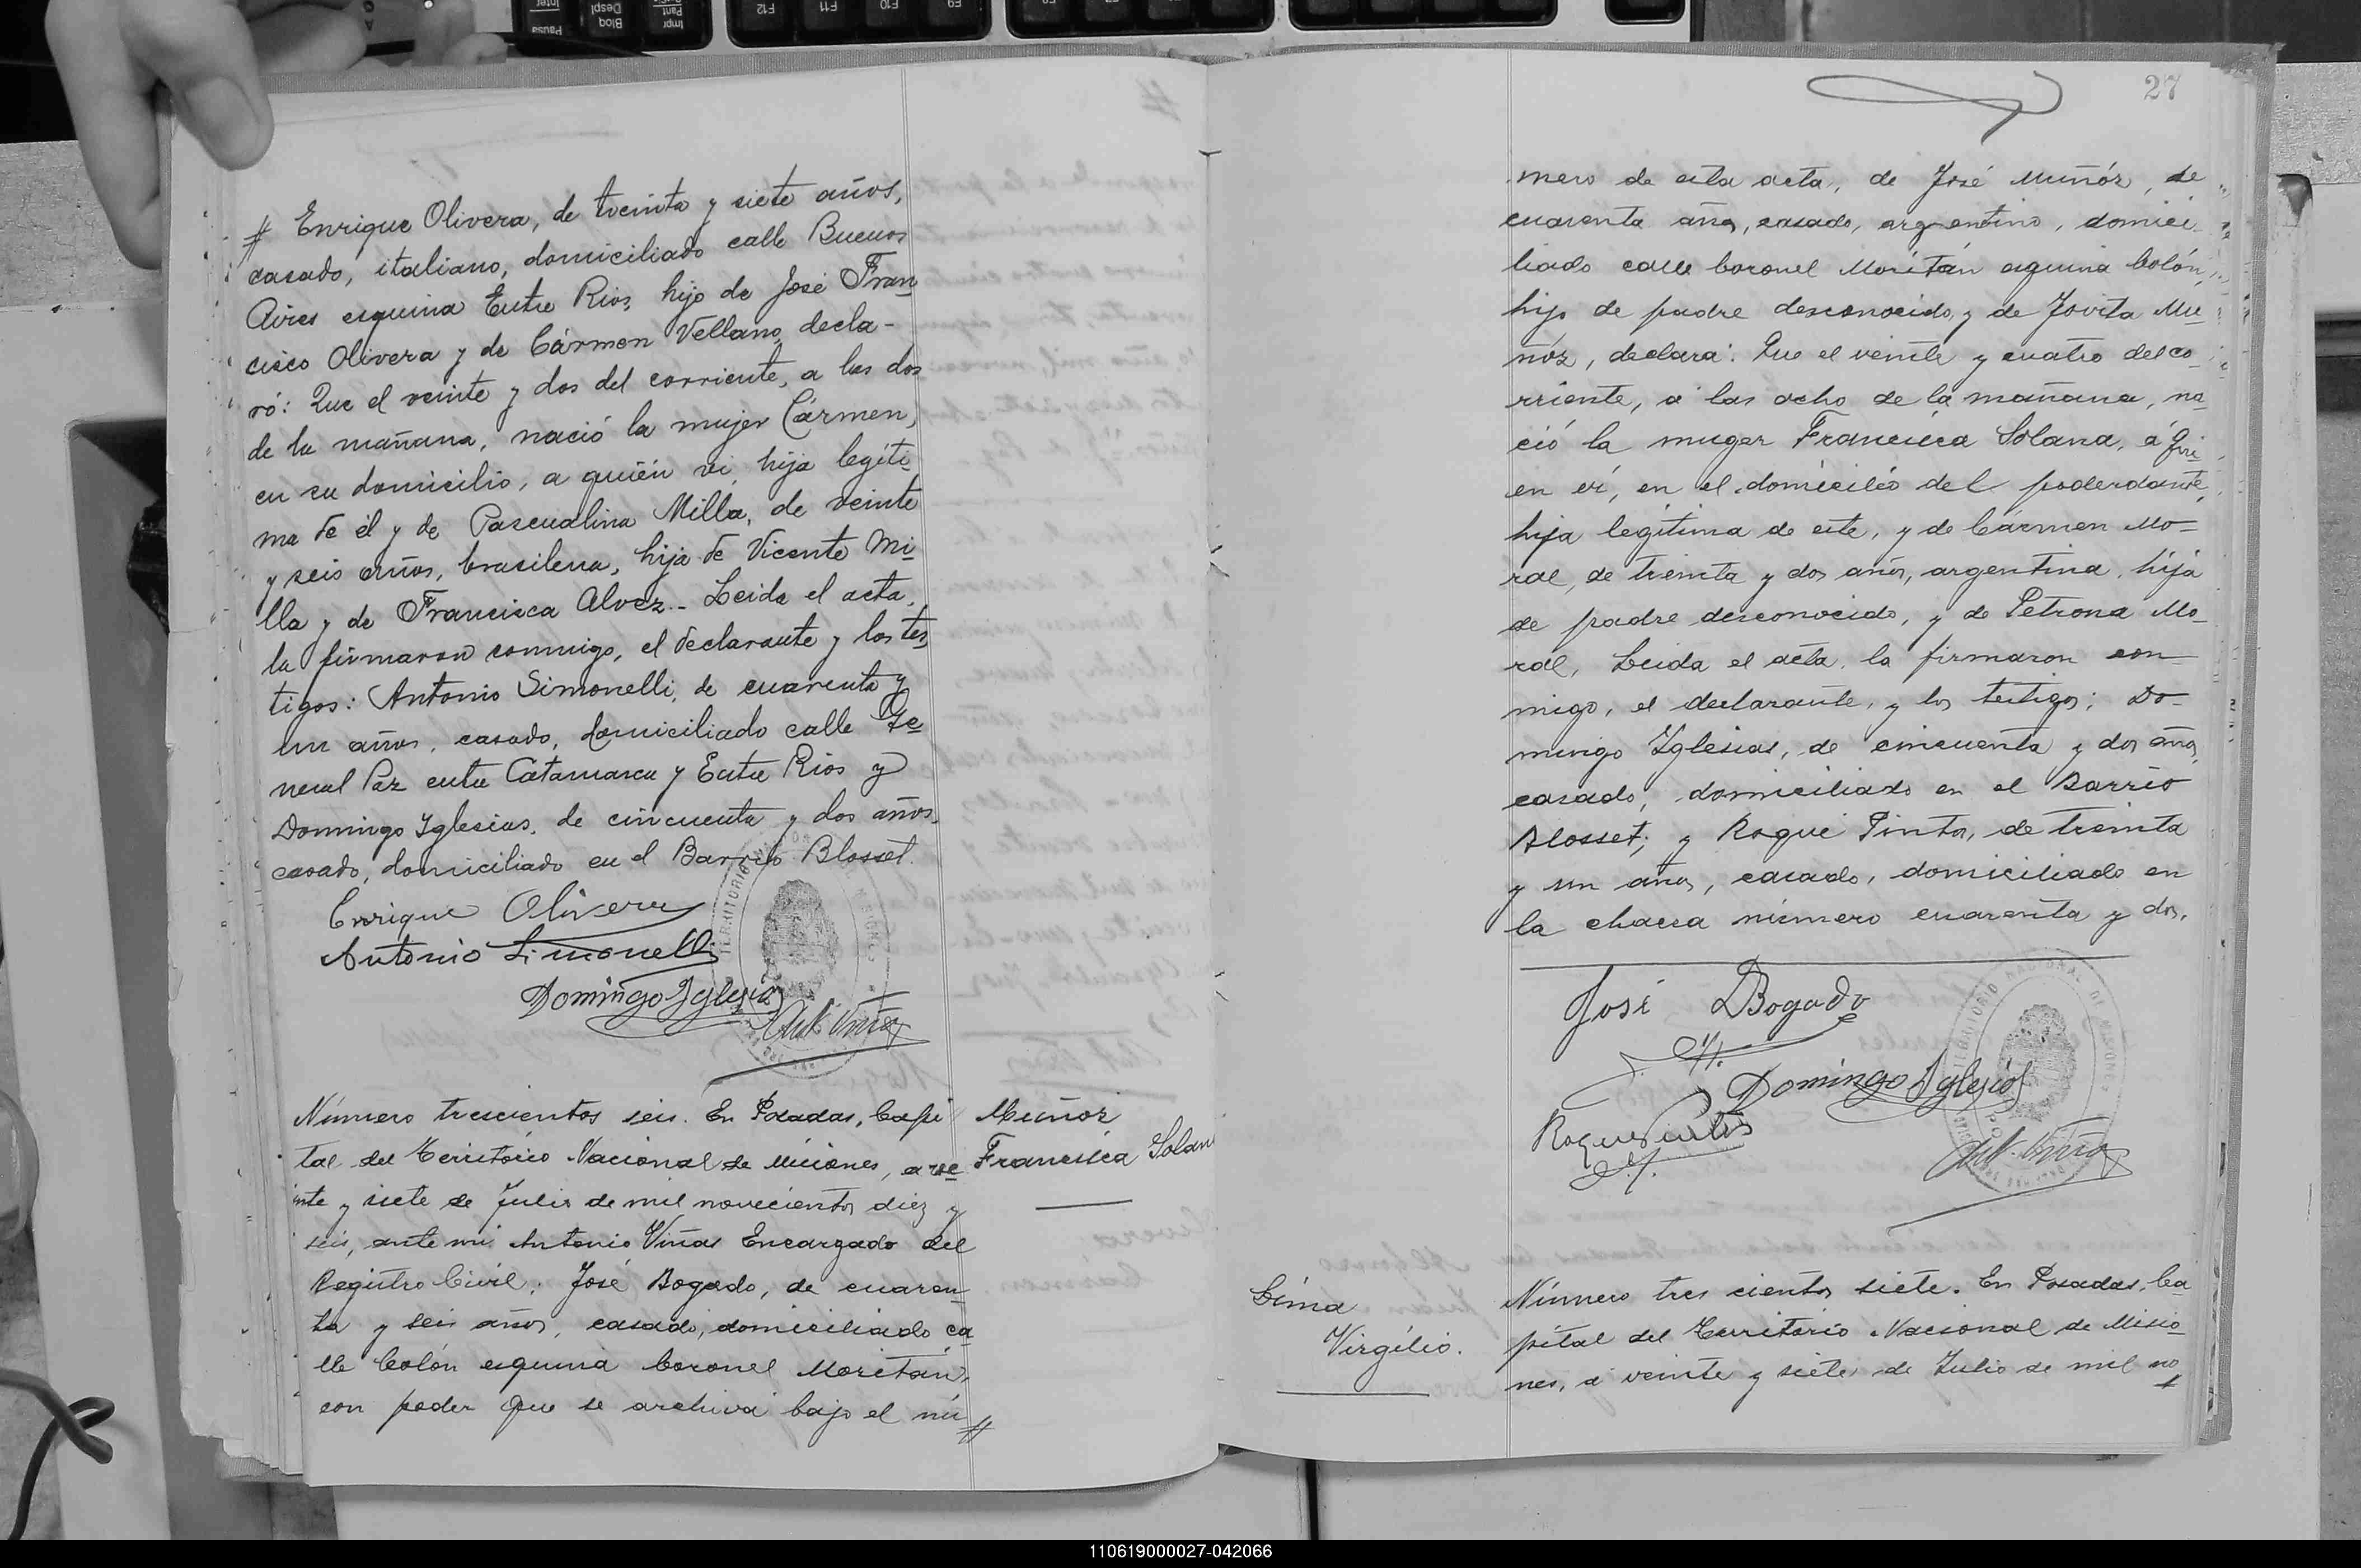 # Enrique Olivera, de treinta y siete años,
casado, italiano, domiciliado calle Buenos
Aires esquina Entre Rios, hijo de José Fran
cisco Olivera y de Cármen Vellano, decla-
ró: Que el veinte y dos del corriente, a las dos
de la mañana, nació la mujer Cármen,
en su domicilio, a quién vi, hija legíti
ma de él y de Pascualina Milla, de veinte
y seis años, brasilena, hija de Vicente Mi
lla y de Francisca Alvez.- Leida el acta,
la firmaron conmigo, el declarante y los tes
tigos: Antonio Simonelli, de cuarenta y
un años, casado, domiciliado calle Ge
neral Paz entre Catamarca y Entre Rios y
Domingo Yglesias, de cincuenta y dos años,
casado, domiciliado en el Barrio Blosset.
Enrique Olivera
Antonio Simonelli
Domingo Yglesias
Ant. Viñas
Número trescientos seis. En Posadas, Capi
tal del Território Nacional de Misiones, a ve
inte y siete de Julio de mil novecientos diez y
seis, ante mi Antonio Viñas Encargado del
Registro Civil; José Bogado, de cuaren
ta y seis años, casado, domiciliado ca
lle Colón esquina Coronel Moritán,
con poder que se archiva bajo el nú #
Muñóz
Francisca Solan
27
mero de esta acta, de José Muñóz, de
cuarenta años, casado, argentino, domici
liado calle Coronel Moritán esquina Colón,
hijo de padre desconocido, y de Jovita Mu
ñóz, declara: Que el veinte y cuatro del co
rriente, a las ocho de la mañana, na
ció la muger Francisca Solana, á qui
en ví, en el domicilio del poderdante,
hija legítima de este, y de Cármen Mo-
ral, de treinta y dos años, argentina, hija
de padre desconocido, y de Petrona Mo-
ral, Leida el acta, la firmaron con-
migo, el declarante, y los testigos; Do-
mingo Yglesias, de cincuenta y dos años,
casado, domiciliado en el Barrio
Blosset; y Roque Pintos, de treinta
y un años, casado, domiciliado en
la chacra número cuarenta y dos.
José Bogado
Domingo Yglesias
Roque Pintos
Ant. Viñas
Lima
Virgílio.
Número tres cientos siete. En Posadas, Ca
pital del Território Nacional de Misio
nes, a veinte y siete de Julio de mil no
110619000027-042066